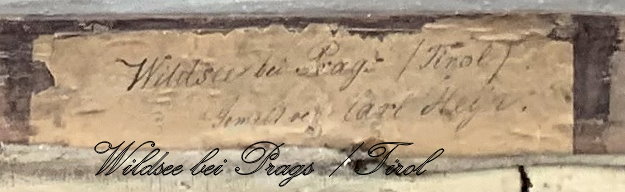 Wildsee bei Prags (Tirol)
gemalt von Carl Heyn.
Wildsee bei Prags / Tirol